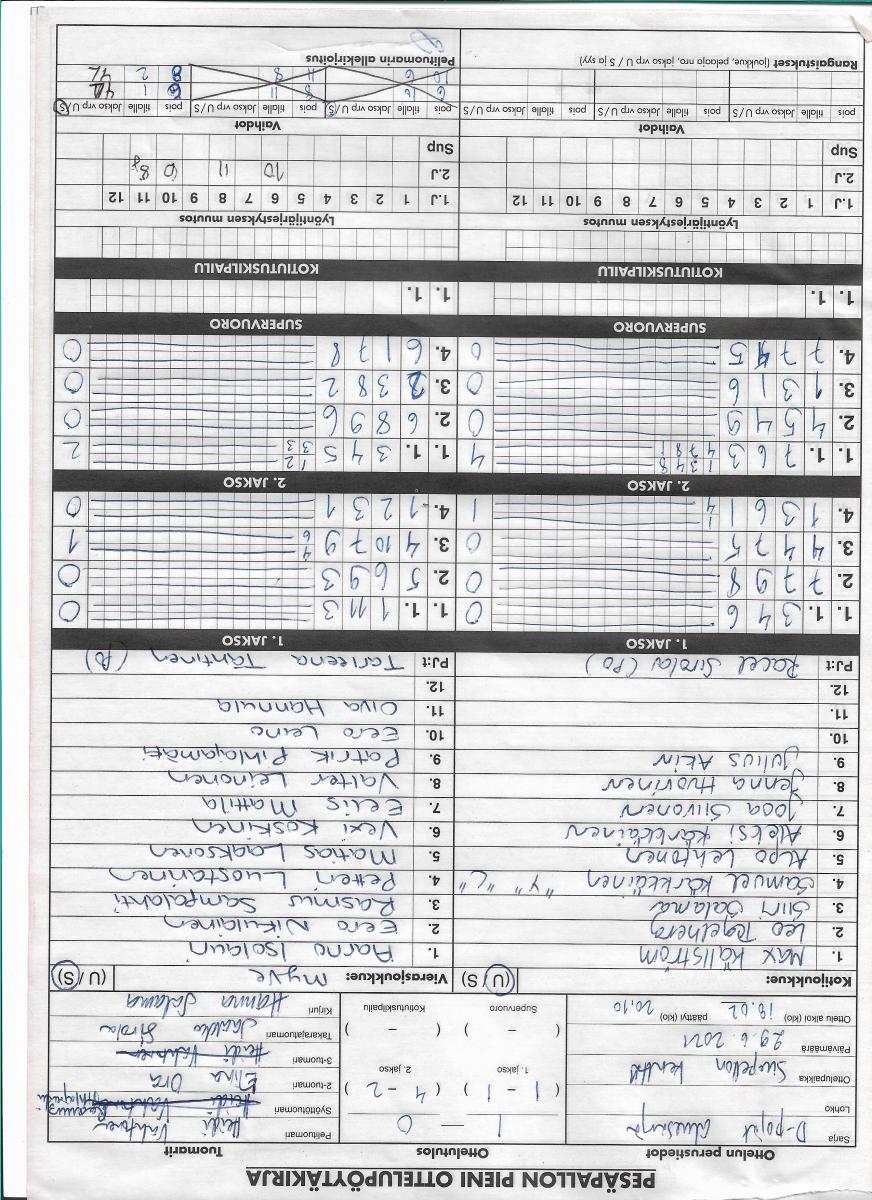 PESÄPALLON PIENI OTTELUPÖYTÄKIRJA
Ottelun perustiedot
Sarja D-pojat
Lohko
Ottelupaikka kenttä
Päivämäärä 29.6.2021
Ottelu alkoi (klo) 18.02 päättyi (klo) 20.10
Ottelutulos
1 — 0
1. jakso ( 1 - 1 )
2. jakso ( 4 - 2 )
Supervuoro ( - )
Kotiutuskilpailu ( - )
Tuomarit
Pelituomari Heidi Valtonen
Syöttötuomari
2-tuomari Elina Ora
3-tuomari
Takarajatuomari Jaakko Sirola
Kirjuri Hanna Salama
Kotijoukkue: (U / S)
1. Max Källström
2. Leo
3. Siiri Salama
4. Samuel Kärkkäinen "Y" "C"
5. Alpo Lehtonen
6. Aleksi Kärkkäinen
7. Jooa Siivonen
8. Jenna Huovinen
9. Julius Akin
10.
11.
12.
PJ:t Sirola (PO)
Vierasjoukkue: MyVe (U / S)
1. Aarno Isolauri
2. Eero Nikulainen
3. Rasmus Sampolahti
4. Petteri Luostarinen
5. Matias Laaksonen
6. Vexi Koskinen
7. Eelis Mattila
8. Valter Leinonen
9. Patrik Pihlajamäki
10. Eero Leino
11. Oiva Hannula
12.
PJ:t Tantinen (PO)
1. JAKSO
1. 1. 3 4 6 0
2. 7 7 9 8 0
3. 4 4 7 5 0
4. 1 3 6 1 1 4 1
1. JAKSO
1. 1. 1 11 3 0
2. 5 6 9 3 0
3. 4 10 7 9 4 6 1
4. 1 2 3 1 0
2. JAKSO
1. 1. 7 6 3 4
2. 4 5 4 9 0
3. 1 3 1 6 0
4. 7 7 4 5 0
2. JAKSO
1. 1. 3 4 5 1 2 3 3 2
2. 6 8 9 6 0
3. 2 3 8 2 0
4. 6 1 7 8 0
SUPERVUORO
1. 1.
SUPERVUORO
1. 1.
KOTIUTUSKILPAILU
KOTIUTUSKILPAILU
Lyöntijärjestyksen muutos
1.J 1 2 3 4 5 6 7 8 9 10 11 12
2.J
Sup
Lyöntijärjestyksen muutos
1.J 1 2 3 4 5 6 7 8 9 10 11 12
2.J 10 11
Sup
Vaihdot
pois tilalle Jakso vrp U/S pois tilalle Jakso vrp U/S pois tilalle Jakso vrp U/S
Vaihdot
pois tilalle Jakso vrp U/S pois tilalle Jakso vrp U/S pois tilalle Jakso vrp U/S
Rangaistukset (joukkue, pelaajan nro, jakso vrp U / S ja syy)
Pelituomarin allekirjoitus